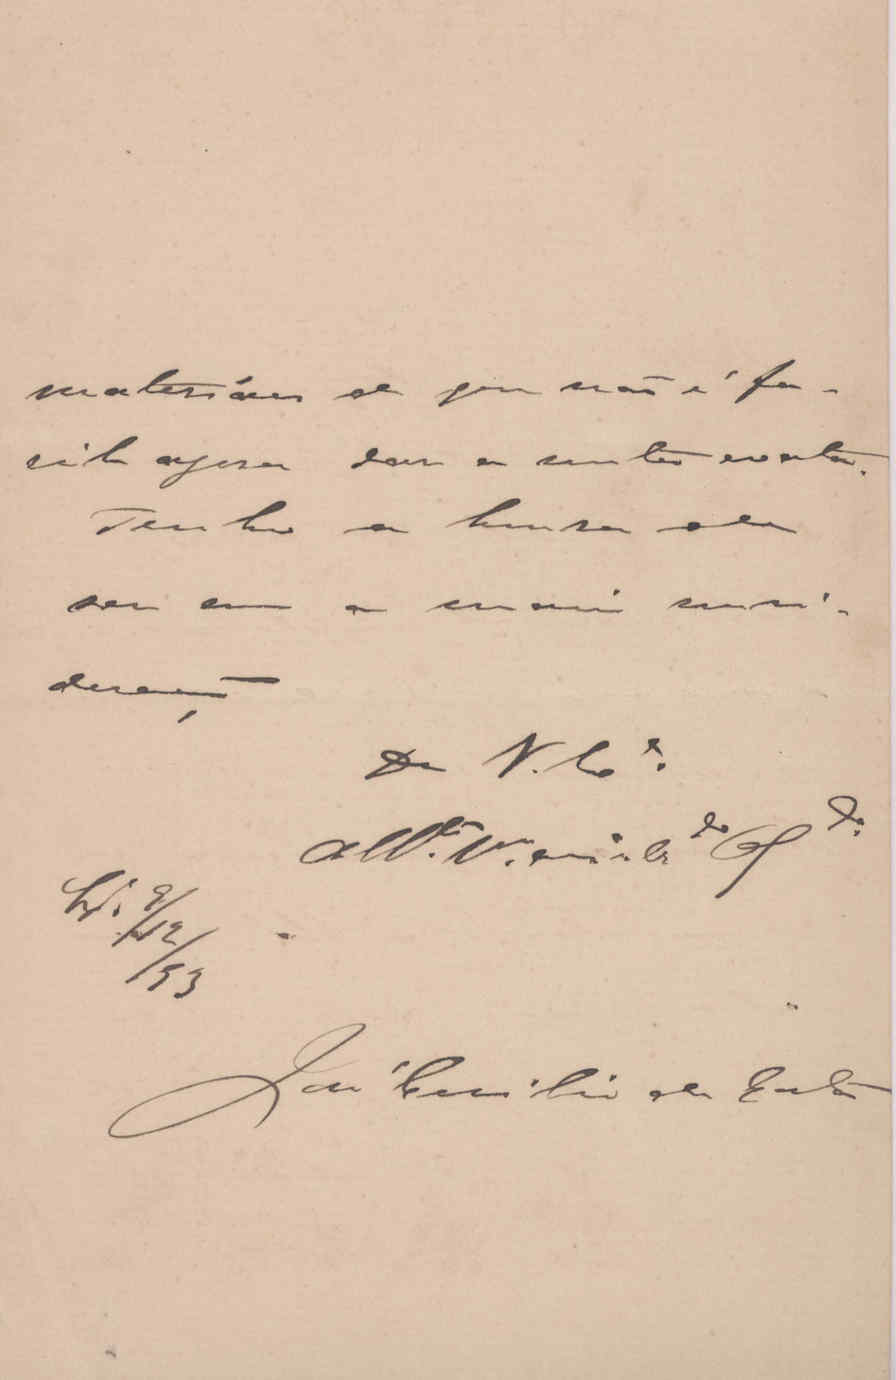 materiáes de que não é fa-
cil agora dar a nota exata.
Tenho a honra de
ser com a maior consi-
deração
De V. Ex.ª
Att.º V.ºr e Cr.do Obg.do
Lx.ª 9/12/93
José Emilio de